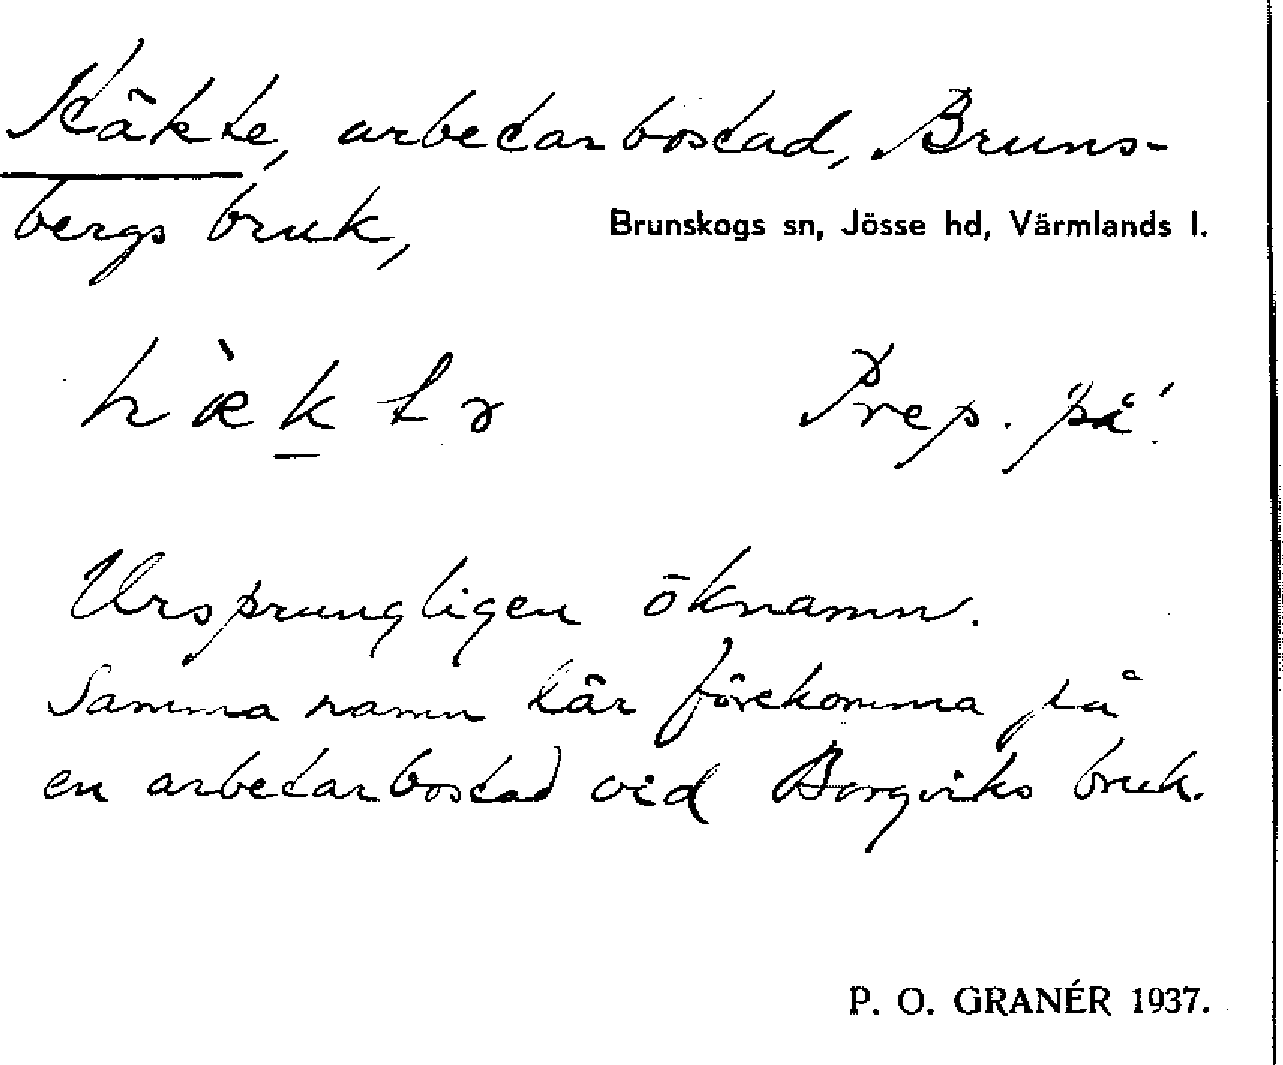 Häkte, arbetarbostad, Bruns-
bergs bruk,
Brunskogs sn, Jösse hd, Värmlands l.
hæ̀ktɤ Prep. 'på'
Ursprungligen öknamn.
Samma namn lär förekomma på
en arbetarbostad vid Borgviks bruk.
P. O. GRANÉR 1937.